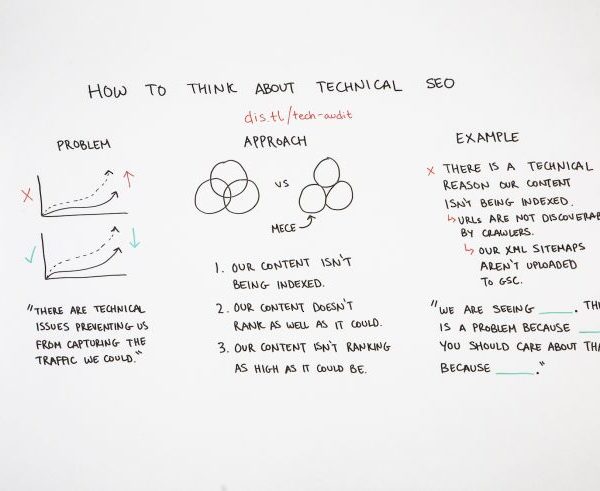 HOW TO THINK ABOUT TECHNICAL SEO
dis.tl/tech-audit
PROBLEM
X
"THERE ARE TECHNICAL
ISSUES PREVENTING US
FROM CAPTURING THE
TRAFFIC WE COULD."
APPROACH
VS
MECE
1. OUR CONTENT ISN'T
BEING INDEXED.
2. OUR CONTENT DOESN'T
RANK AS WELL AS IT COULD.
3. OUR CONTENT ISN'T RANKING
AS HIGH AS IT COULD BE.
EXAMPLE
X THERE IS A TECHNICAL
REASON OUR CONTENT
ISN'T BEING INDEXED.
URLs ARE NOT DISCOVERAB
BY CRAWLERS.
OUR XML SITEMAPS
AREN'T UPLOADED
TO GSC.
"WE ARE SEEING ____. THI
IS A PROBLEM BECAUSE ____
YOU SHOULD CARE ABOUT THA
BECAUSE ____."